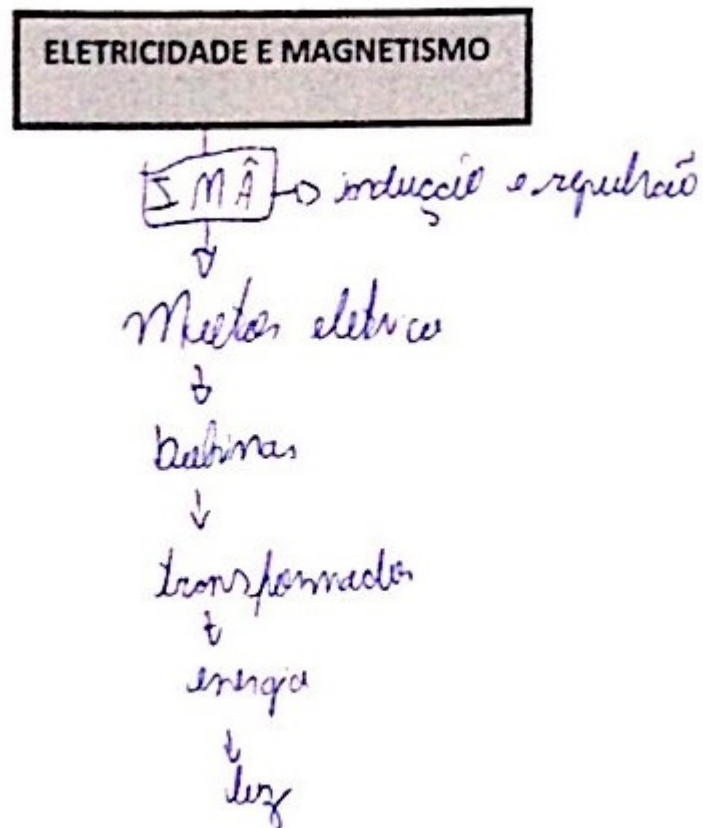 ELETRICIDADE E MAGNETISMO
IMÂ → indução e repulsão
Motor eletrico
bobinas
transformador
energia
luz